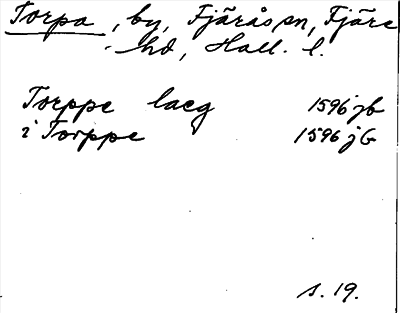 Torpa, by, Fjäråssn, Fjäre
hd, Hall. l.
Torppe laeg 1596 jb
i Torppe 1596 jb
s. 19.